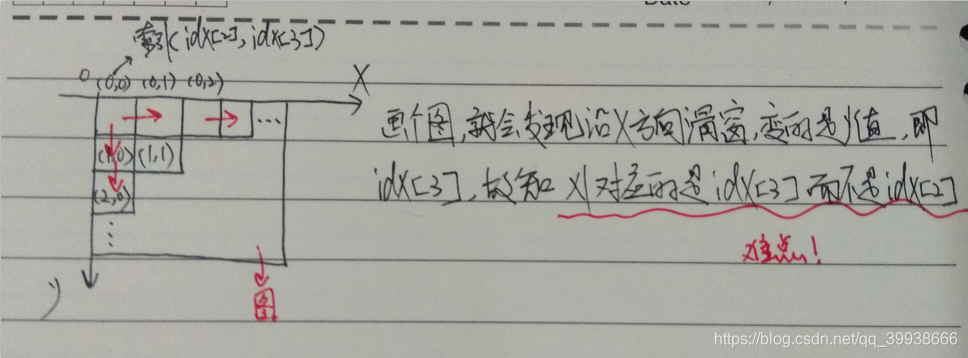 Date
索引(idx[2], idx[3])
0 (0,0) (0,1) (0,2) X
...
(1,0) (1,1)
(2,0)
y
图
画个图,就会发现沿X方向滑窗,变的是y值,即
idx[3],故知 x1对应的是idx[3]而不是idx[2]
难点!
https://blog.csdn.net/qq_39938666